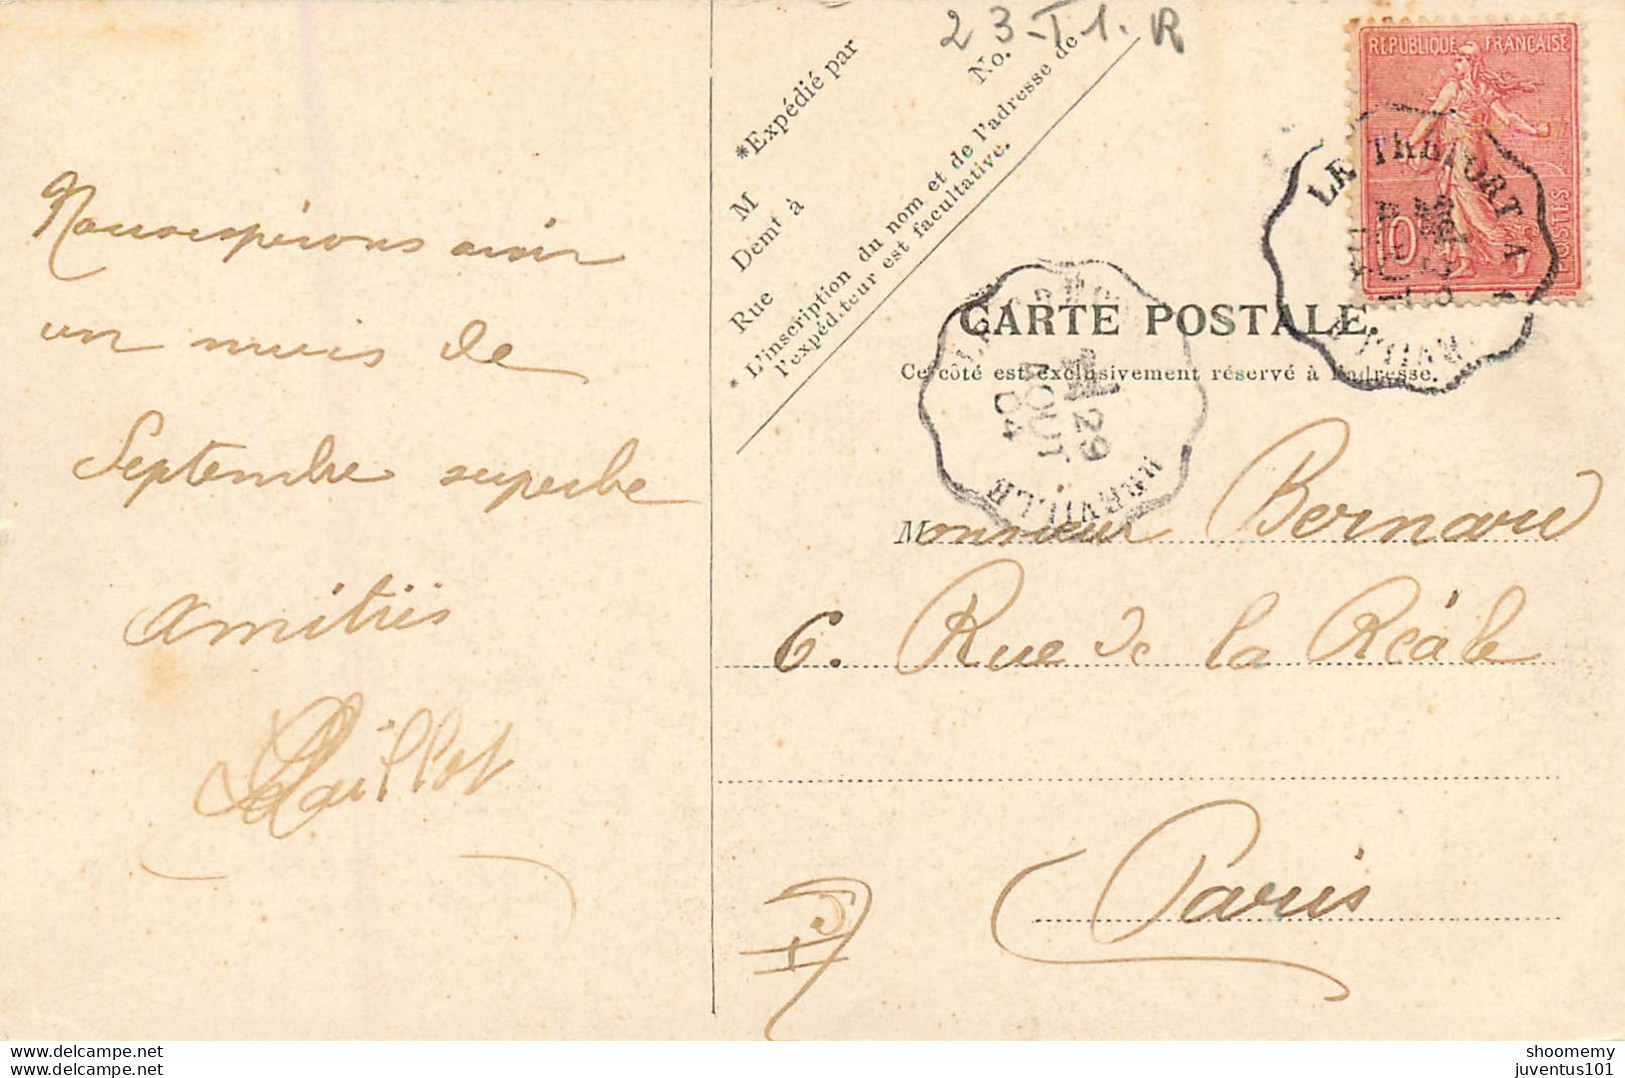 23-T1.R
*Expédié par
No.
M
Demt à
Rue
* L'inscription du nom et de l'adresse de
l'expéditeur est facultative.
REPUBLIQUE FRANÇAISE
10
POSTES
LE TREPORT A
CARTE POSTALE
Ce côté est exclusivement réservé à l'adresse.
29
AOUT
04
Nous espérons avoir
un mois de
Septembre superbe
amitiés
Monsieur Bernard
6. Rue de la Réale
Paris
www.delcampe.net
www.delcampe.net
shoomemy
juventus101